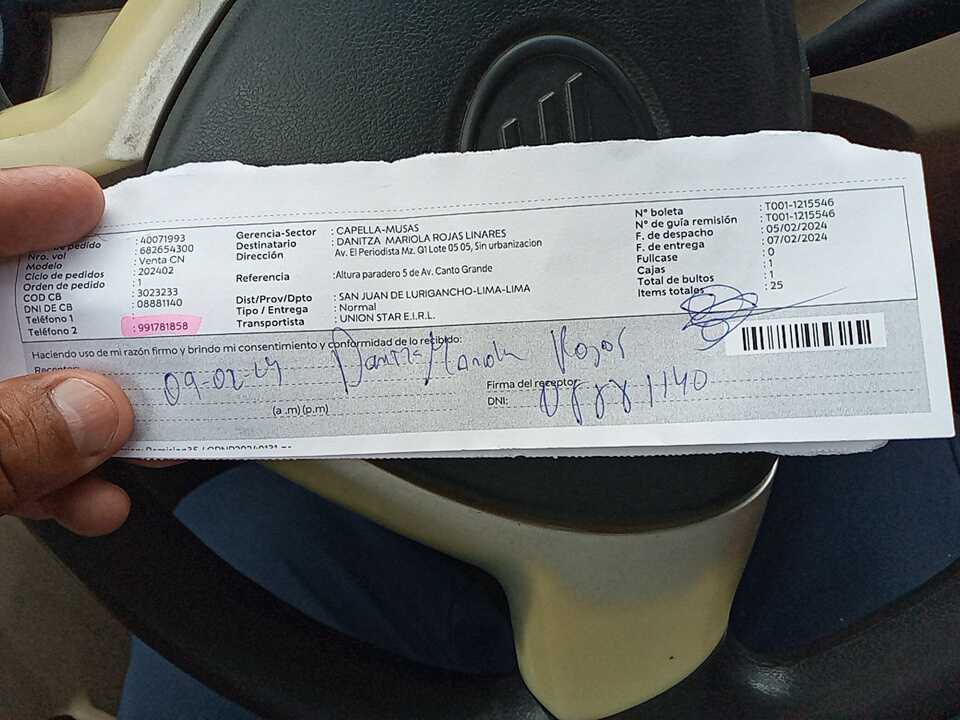 pedido : 40071993
Nro. vol : 682654300
Modelo : Venta CN
Ciclo de pedidos : 202402
Orden de pedido : 1
COD CB : 3023233
DNI DE CB : 08881140
Teléfono 1
Teléfono 2 : 991781858
Gerencia-Sector : CAPELLA-MUSAS
Destinatario : DANITZA MARIOLA ROJAS LINARES
Dirección : Av. El Periodista Mz. G1 Lote 05 05, Sin urbanizacion
Referencia : Altura paradero 5 de Av. Canto Grande
Dist/Prov/Dpto : SAN JUAN DE LURIGANCHO-LIMA-LIMA
Tipo / Entrega : Normal
Transportista : UNION STAR E.I.R.L.
N° boleta : T001-1215546
N° de guía remisión : T001-1215546
F. de despacho : 05/02/2024
F. de entrega : 07/02/2024
Fullcase : 0
Cajas : 1
Total de bultos : 1
Items totales : 25
Haciendo uso de mi razón firmo y brindo mi consentimiento y conformidad de lo recibido:
Receptor
09-02-24 Danitza Mariola Rojas
(a .m) (p.m)
Firma del receptor
DNI: 08881140